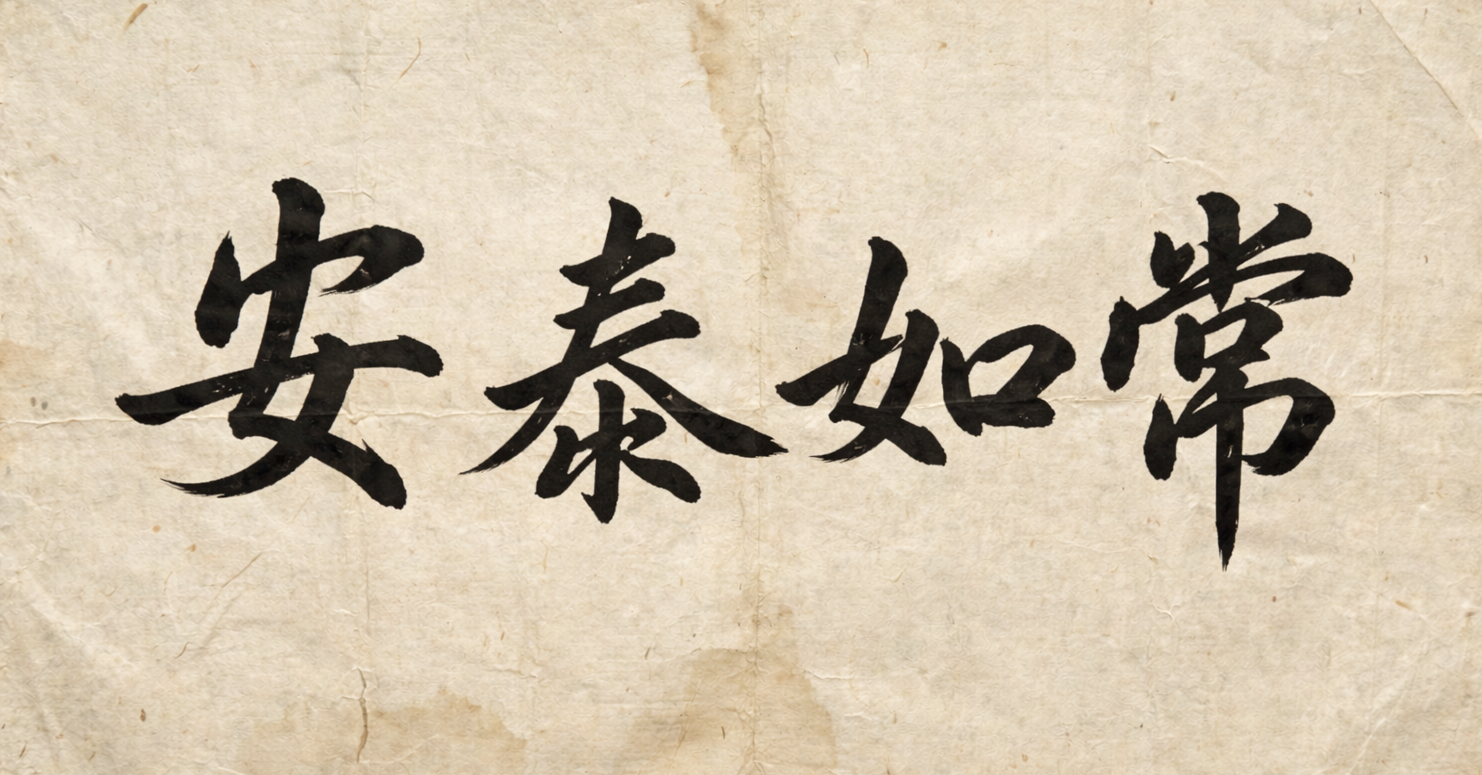 安泰如常